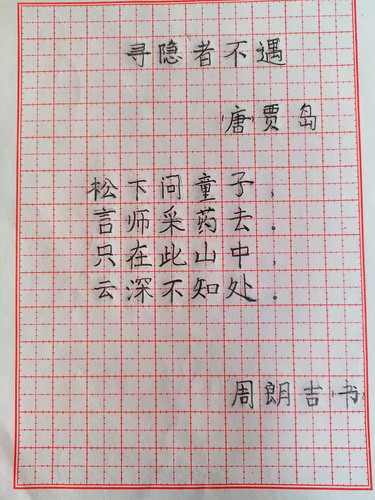 寻隐者不遇
(唐)贾岛
松下问童子,
言师采药去。
只在此山中,
云深不知处。
周朗吉(书)